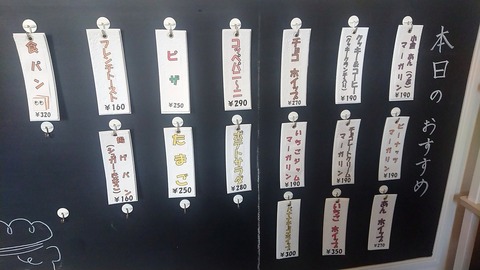 本日のおすすめ
小倉あん(つぶ)
マーガリン
¥190
クッキー&コーヒー
¥190
チョコ
ホイップ
¥270
コッペパン
¥290
ピザ
¥250
フレンチトースト
¥160
食パン
¥320
ピーナッツ
マーガリン
¥190
チョコレートクリーム
マーガリン
¥190
いちごジャム
マーガリン
¥190
ポテトサラダ
¥280
たまご
¥250
揚げパン
¥160
あん
ホイップ
¥270
いちご
ホイップ
¥350
¥300